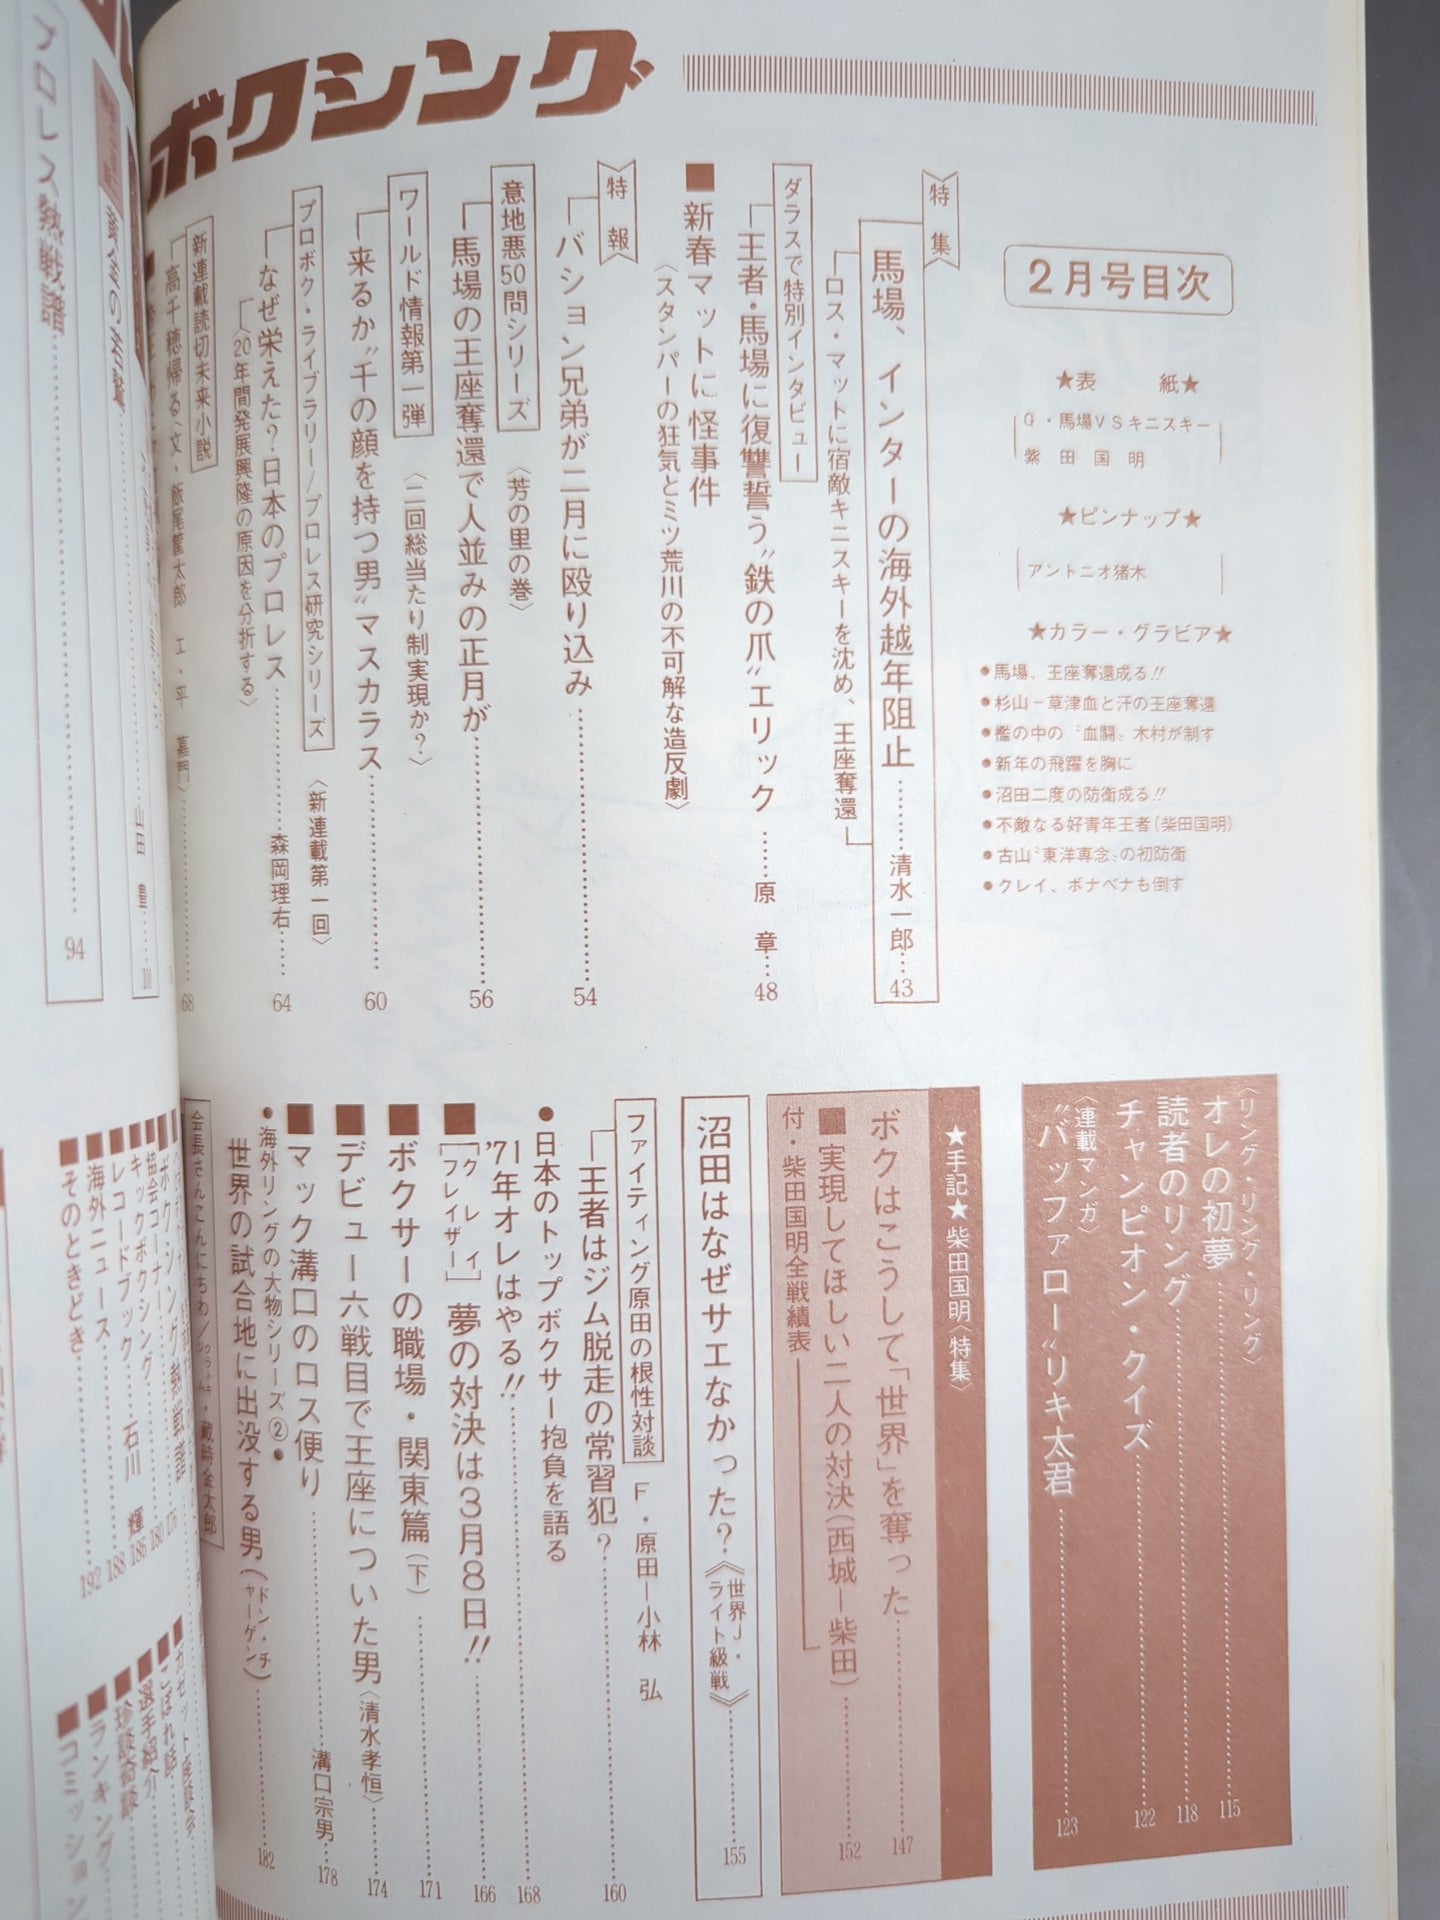 ボクシング
2月号目次
★表　紙★
G・馬場VSキニスキー
柴田国明
★ピンナップ★
アントニオ猪木
★カラー・グラビア★
●馬場、王座奪還成る!!
●杉山－草津血と汗の王座奪還
●檻の中の〝血闘〟木村が制す
●新年の飛躍を胸に
●沼田二度の防衛成る!!
●不敵なる好青年王者(柴田国明)
●古山〝東洋専念〟の初防衛
●クレイ、ボナベナも倒す
特集
馬場、インターの海外越年阻止………清水一郎…43
ロス・マットに宿敵キニスキーを沈め、王座奪還
ダラスで特別インタビュー
王者・馬場に復讐誓う〝鉄の爪〟エリック……原　章…48
■新春マットに怪事件
〈スタンパーの狂気とミツ荒川の不可解な造反劇〉
特報
バション兄弟が二月に殴り込み………54
意地悪50問シリーズ
〈芳の里の巻〉
馬場の王座奪還で人並みの正月が………56
ワールド情報第一弾
〈二回総当たり制実現か?〉
来るか〝千の顔を持つ男〟マスカラス………60
プロボク・ライブラリー/プロレス研究シリーズ
〈新連載第一回〉
なぜ栄えた?日本のプロレス………森岡理右……64
〈20年間発展興隆の原因を分折する〉
新連載読切未来小説
高千穂帰る〈文・飯尾篁太郎　エ・平　墓門〉………68
〈リング・リング・リング〉
オレの初夢………115
読者のリング………118
チャンピオン・クイズ………122
〈連載マンガ〉
〝バッファロー〟リキ太君………123
★手記★柴田国明〈特集〉
ボクはこうして「世界」を奪った………147
■実現してほしい二人の対決(西城―柴田)………152
付・柴田国明全戦績表
沼田はなぜサエなかった?《世界J・ライト級戦》………155
ファイティング原田の根性対談　F・原田―小林　弘
王者はジム脱走の常習犯?………160
●日本のトップボクサー抱負を語る
'71年オレはやる!!………168
■[クレイ フレイザー]夢の対決は3月8日!!………166
■ボクサーの職場・関東篇(下)………171
■デビュー六戦目で王座についた男〈清水孝恒〉………174
■マック溝口のロス便り………溝口宗男…178
●海外リングの大物シリーズ②●
世界の試合地に出没する男(ドン・チャーゲン)………182
会長さんこんにちわ/クラトキジム・蔵時金太郎
プロレス熱戦譜………94
山田　豊
ボクシング熱戦譜………176
■協会コーナー………180
■キックボクシング………石川　輝186
■レコードブック………188
■海外ニュース
■そのときどき………192
■こぼれ話
■選手紹介
■珍談奇談
■ランキング
■コミッション